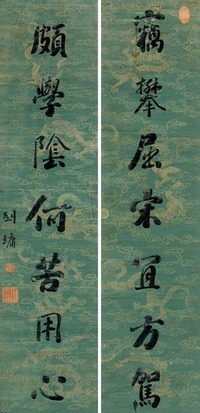 竊攀屈宋宜方駕
頗學陰何苦用心
劉墉